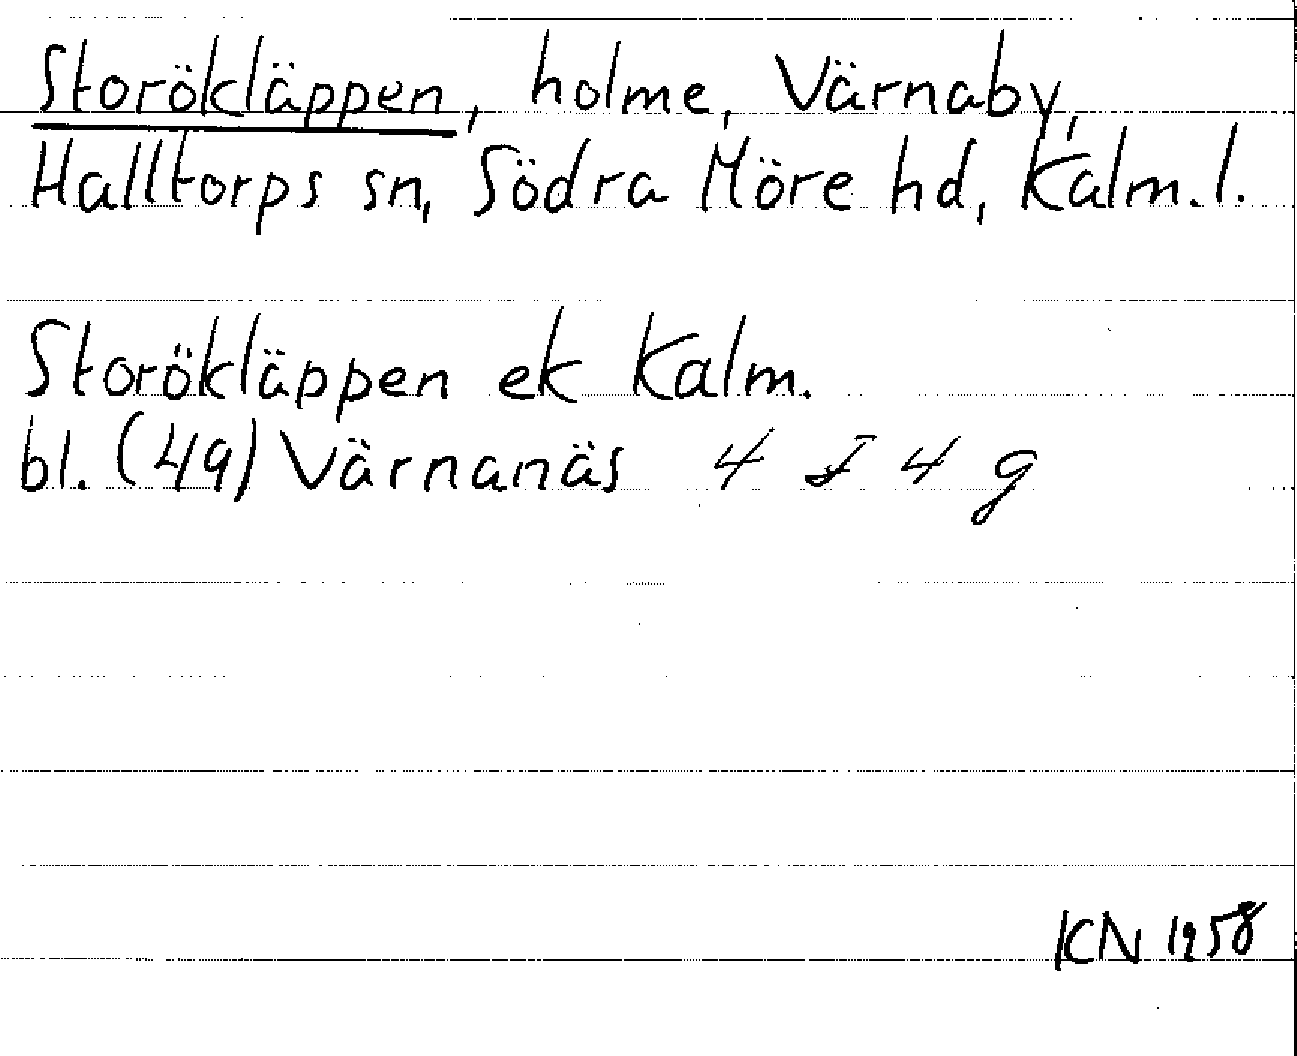 Storökläppen, holme, Värnaby,
Halltorps sn, Södra Möre hd, Kalm. l.
Storökläppen ek Kalm.
bl. (49) Värnanäs 4 I 4 g
KN 1958